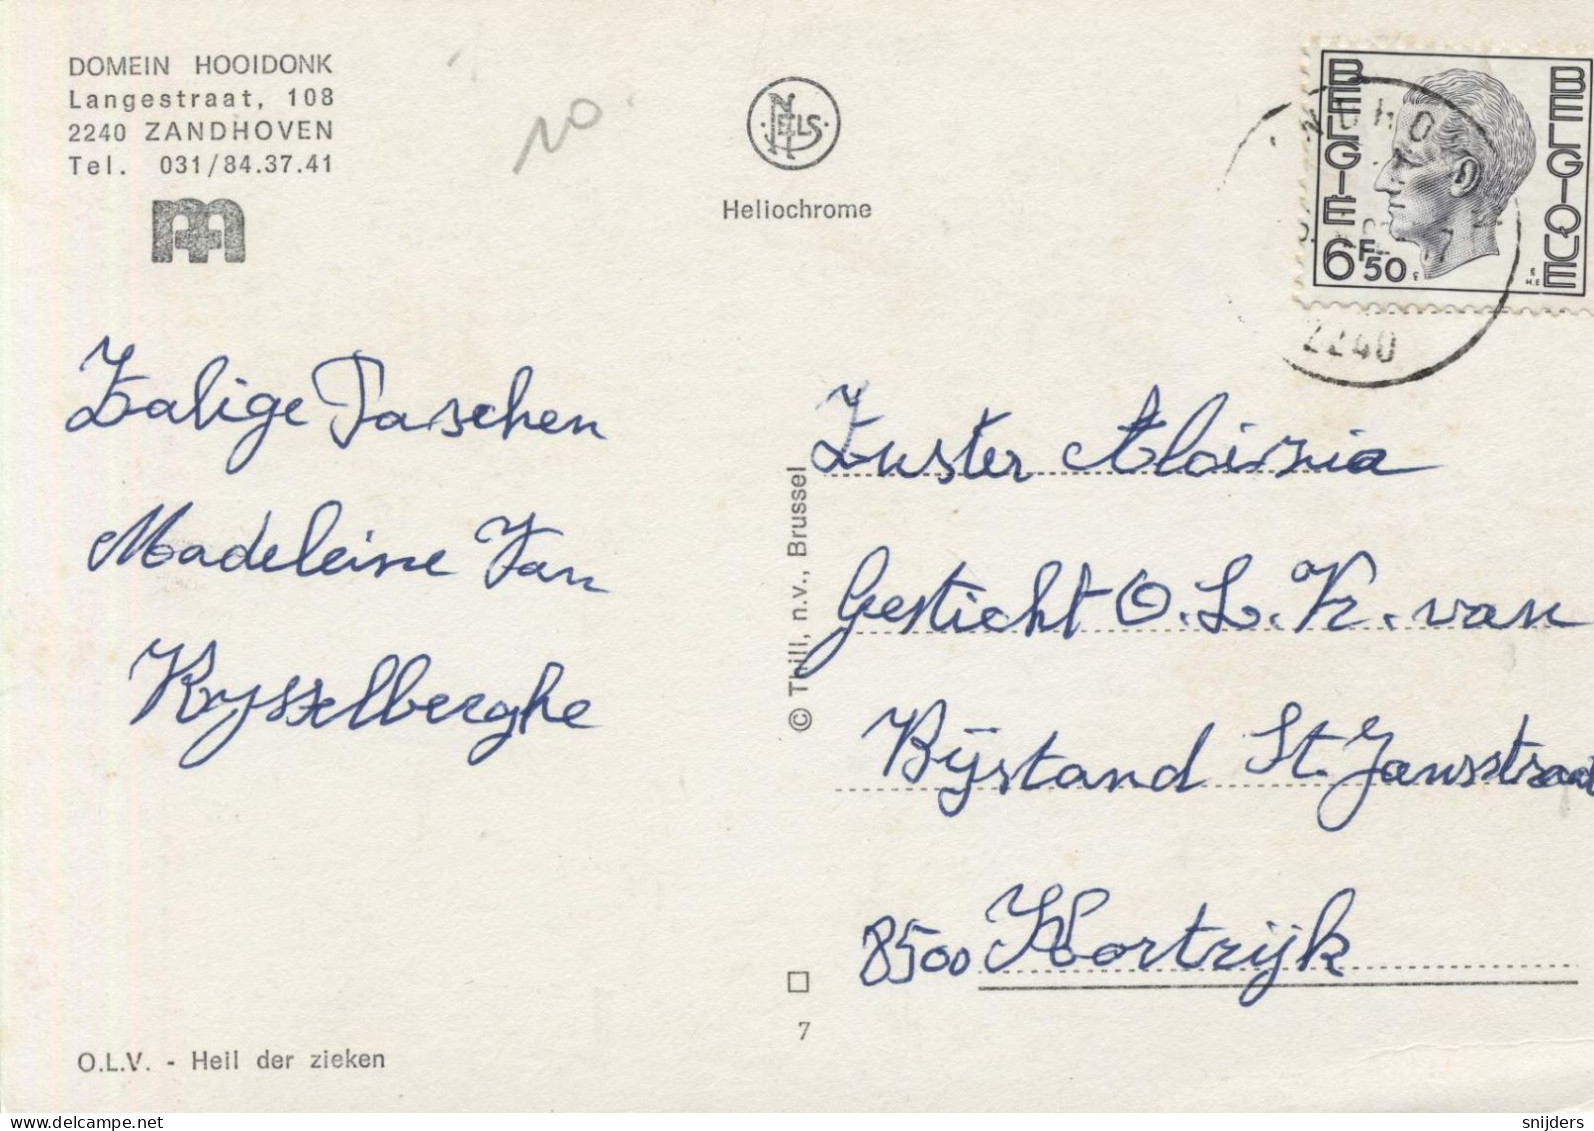 DOMEIN HOOIDONK
Langestraat, 108
2240 ZANDHOVEN
Tel. 031/84.37.41
NELS
Heliochrome
BELGIE
BELGIQUE
6F50
H.E
2240
Zalige Paschen
Madeleine Van
Rysselberghe
Zuster Aloisia
Gesticht O.L.Vr. van
Bijstand St. Jansstraat
8500 Kortrijk
© Thill, n.v., Brussel
7
O.L.V. - Heil der zieken
10
delcampe.net
snijders